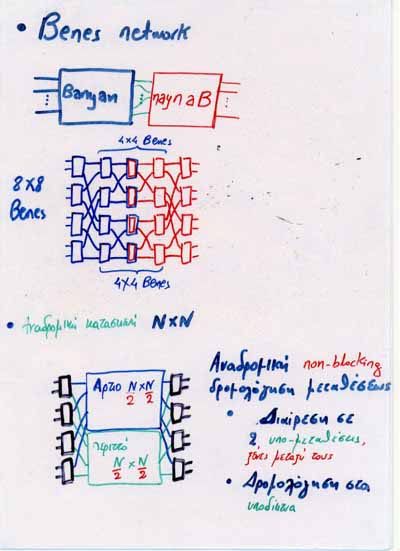 • Benes network
Banyan
naynaB
4x4 Benes
8x8
Benes
4x4 Benes
• Αναδρομική κατασκευή NxN
Αρτιο N/2 x N/2
περιττό
N/2 x N/2
Αναδρομική non-blocking
δρομολόγηση μεταθέσεως
• Διαίρεση σε
2 υπο-μεταθέσεις,
ξένες μεταξύ τους
• Δρομολόγηση στα
υποδίκτυα